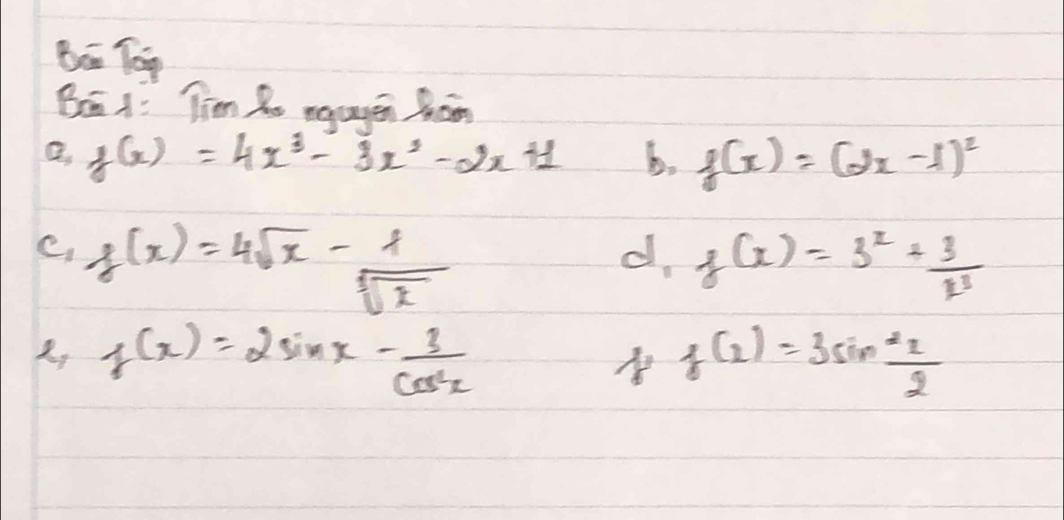 Bài Tập
Bài 1: Tìm họ nguyên hàm
a, f(x) = 4x³ - 3x² - 2x + 1 b, f(x) = (2x - 1)²
c, f(x) = 4√x - 1/∛x d, f(x) = 3ˣ + 3/x³
e, f(x) = 2sinx - 3/cos²x f, f(x) = 3sin²x/2